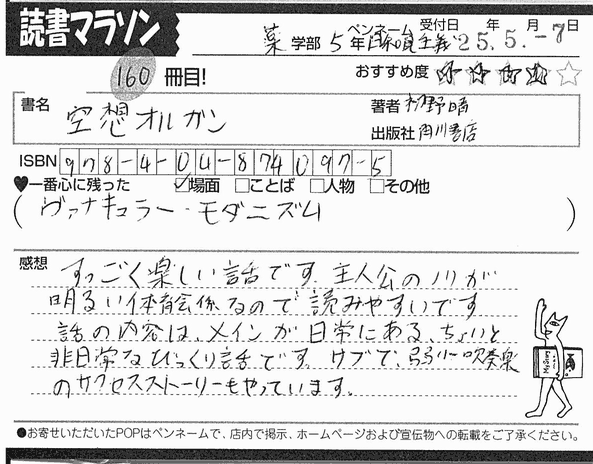 読書マラソン
薬 学部 5 年 ペンネーム 自己嘆美主義 受付日 年 月 日 25.5.-7
160 冊目!
おすすめ度 ★★★★☆
書名 空想オルガン
著者 初野晴
出版社 角川書店
ISBN 978-4-04-874097-5
♥一番心に残った ☑場面 □ことば □人物 □その他
(ヴァナキュラー・モダニズム)
感想 すっごく楽しい話です。主人公のノリが
明るい体育会系なので読みやすいです
話の内容は、メインが日常にある、ちょいと
非日常なびっくり話です。サブで、弱小吹奏楽
のサクセスストーリーもやっています。
●お寄せいただいたPOPはペンネームで、店内で掲示、ホームページおよび宣伝物への転載をご了承ください。